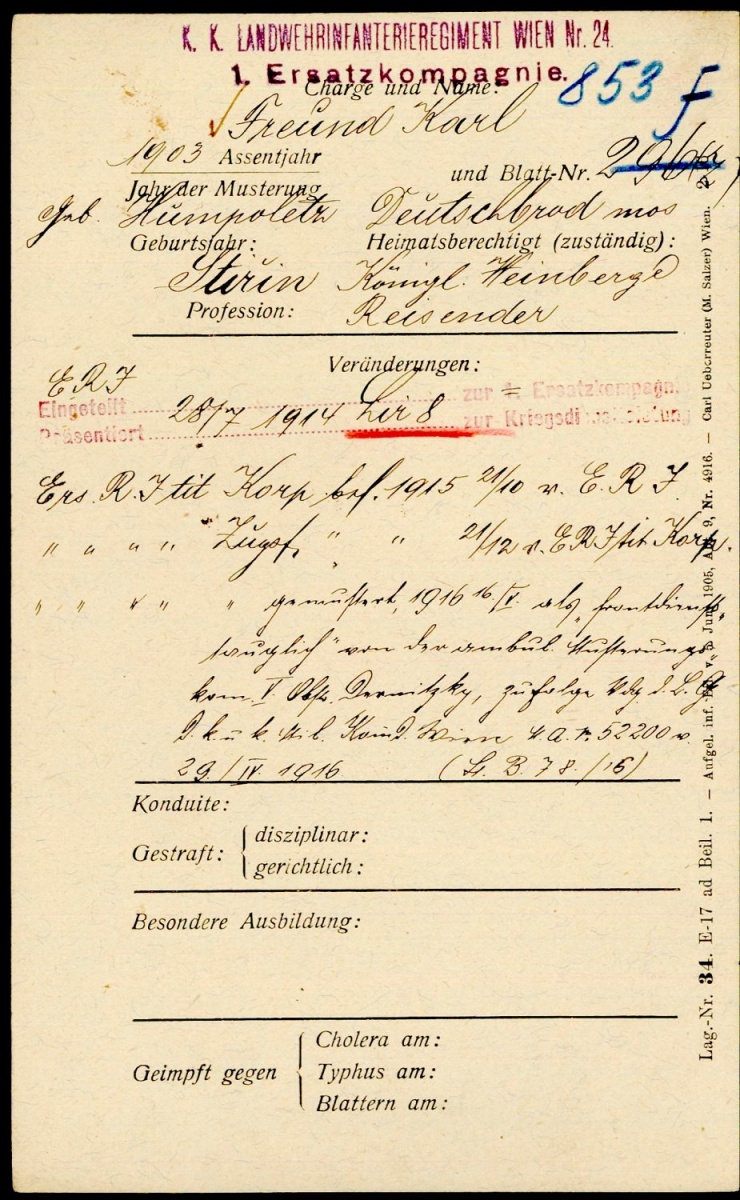 K. K. LANDWEHRINFANTERIEREGIMENT WIEN Nr. 24.
1. Ersatzkompagnie.
853 f
Charge und Name:
Freund Karl
1903 Assentjahr
und Blatt-Nr.
Jahr der Musterung
Geb. Humpoletz Deutschbrod mos
Geburtsjahr: Heimatsberechtigt (zuständig):
Königl. Weinberge
Profession: Reisender
Veränderungen:
E R I
Eingeteilt zur 1. Ersatzkompagnie
28/7 1914 Lir 8
Präsentiert zur
Ers. R. I tit Korp bef. 1915 21/10 v. E. R I.
" " " " Zugsf. " " 21/12 v. E R I tit Korp.
" " " " " gemustert, 1916 16/V. als „frontdienst
tauglich" von der ambul. Musterungs
kom. V Obst. Dernitzky, zufolge Vdg d.
k. u. k. Mil. Komd. Wien M. A. N. 52200 v.
29/IV. 1916 (78/16)
Konduite:
Gestraft: disziplinar:
gerichtlich:
Besondere Ausbildung:
Geimpft gegen
Cholera am:
Typhus am:
Blattern am:
Lag.-Nr. 34. E-17 ad Beil. 1. — Aufgel. inf. 1905, 9, Nr. 4916. — Carl Ueberreuter (M. Salzer) Wien.